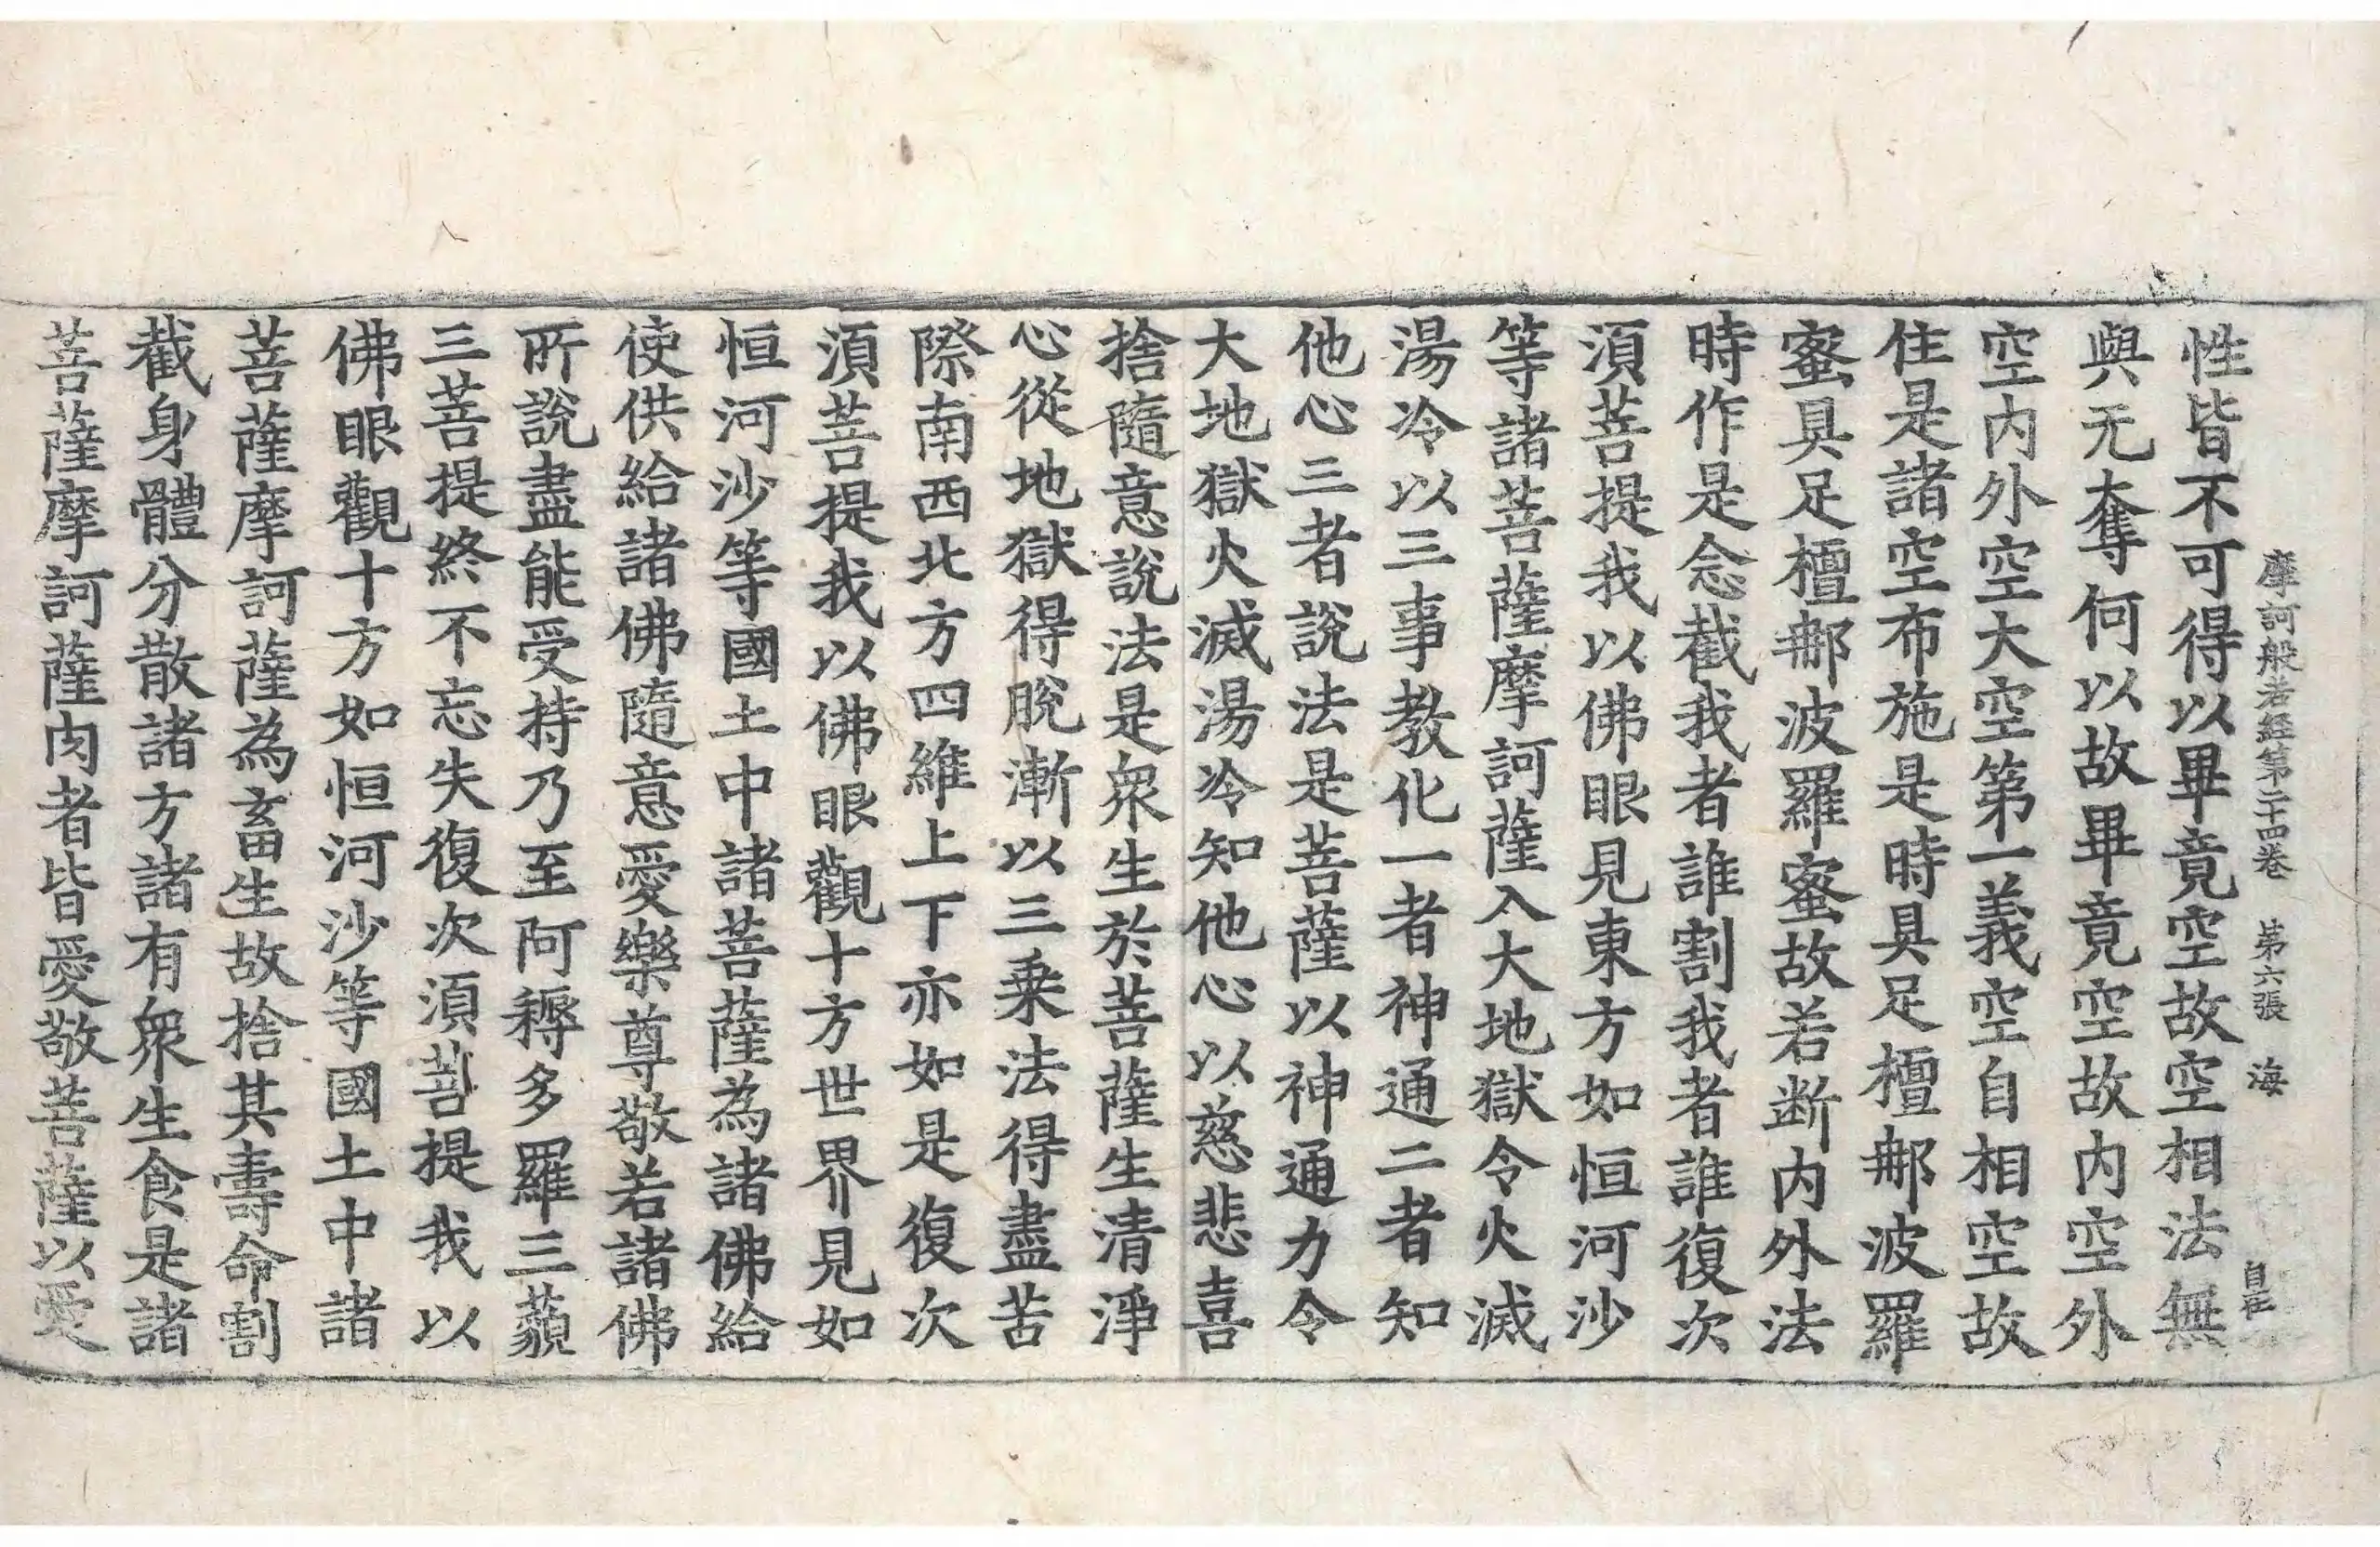 摩訶般若經第二十四卷 第六張 海
性皆不可得以畢竟空故空相法無
與无奪何以故畢竟空故内空外
空内外空空大空第一義空自相空故
住是諸空布施是時具足檀𨚗波羅
蜜具足檀𨚗波羅蜜故若断内外法
時作是念截我者誰割我者誰復次
湏菩提我以佛眼見東方如恒河沙
等諸菩薩摩訶薩入大地獄令火滅
湯冷以三事教化一者神通二者知
他心三者說法是菩薩以神通力令
大地獄火滅湯冷知他心以慈悲喜
捨隨意說法是衆生於菩薩生清淨
心從地獄得脫漸以三乗法得盡苦
際南西北方四維上下亦如是復次
湏菩提我以佛眼觀十方世界見如
恒河沙等國土中諸菩薩為諸佛給
使供給諸佛隨意愛樂尊敬若諸佛
所說盡能受持乃至阿耨多羅三藐
三菩提終不忘失復次湏菩提我以
佛眼觀十方如恒河沙等國土中諸
菩薩摩訶薩為畜生故捨其壽命割
截身體分散諸方諸有衆生食是諸
菩薩摩訶薩肉者皆愛敬菩薩以愛